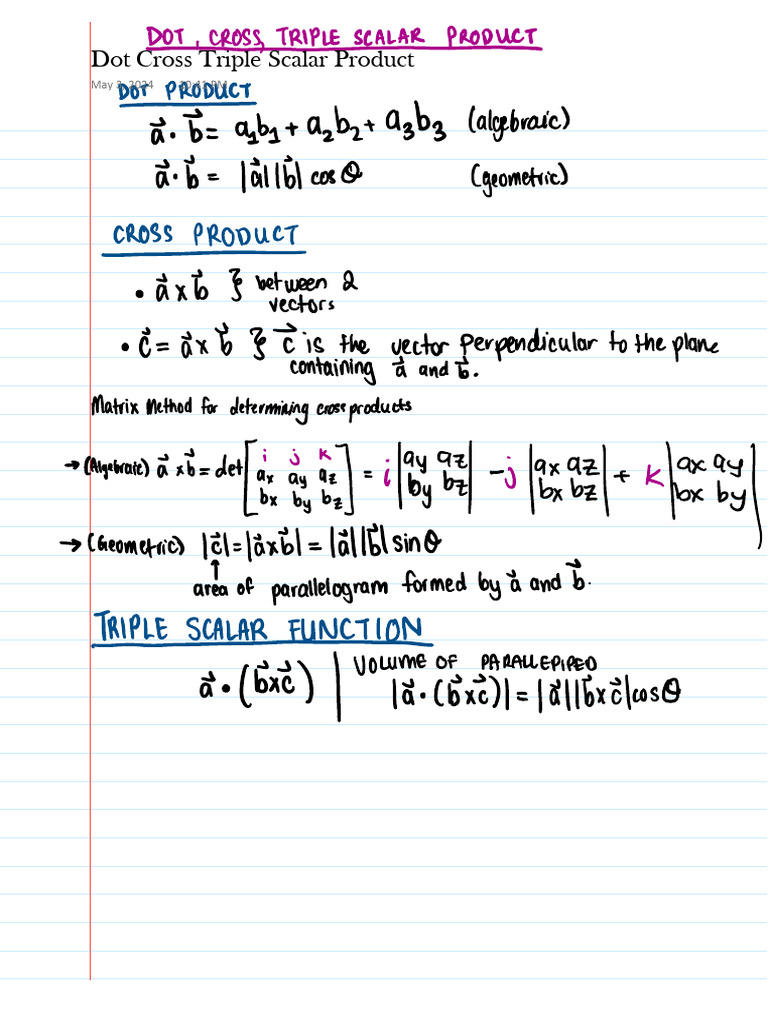 DOT, CROSS, TRIPLE SCALAR PRODUCT
Dot Cross Triple Scalar Product
May 3, 2024
DOT PRODUCT
a⃗ · b⃗ = a₁b₁ + a₂b₂ + a₃b₃ (algebraic)
a⃗ · b⃗ = |a⃗||b⃗| cos θ (geometric)
CROSS PRODUCT
• a⃗ x b⃗ } between 2
vectors
• c⃗ = a⃗ x b⃗ } c⃗ is the vector perpendicular to the plane
containing a⃗ and b⃗.
Matrix Method for determining cross products
→ (Algebraic) a⃗ x b⃗ = det [i j k; ax ay az; bx by bz] = i |ay az; by bz| - j |ax az; bx bz| + k |ax ay; bx by|
→ (Geometric) |c⃗| = |a⃗ x b⃗| = |a⃗||b⃗| sin θ
↑
area of parallelogram formed by a⃗ and b⃗.
TRIPLE SCALAR FUNCTION
VOLUME OF PARALLEPIPED
a⃗ · (b⃗ x c⃗) | |a⃗ · (b⃗ x c⃗)| = |a⃗||b⃗ x c⃗| cos θ